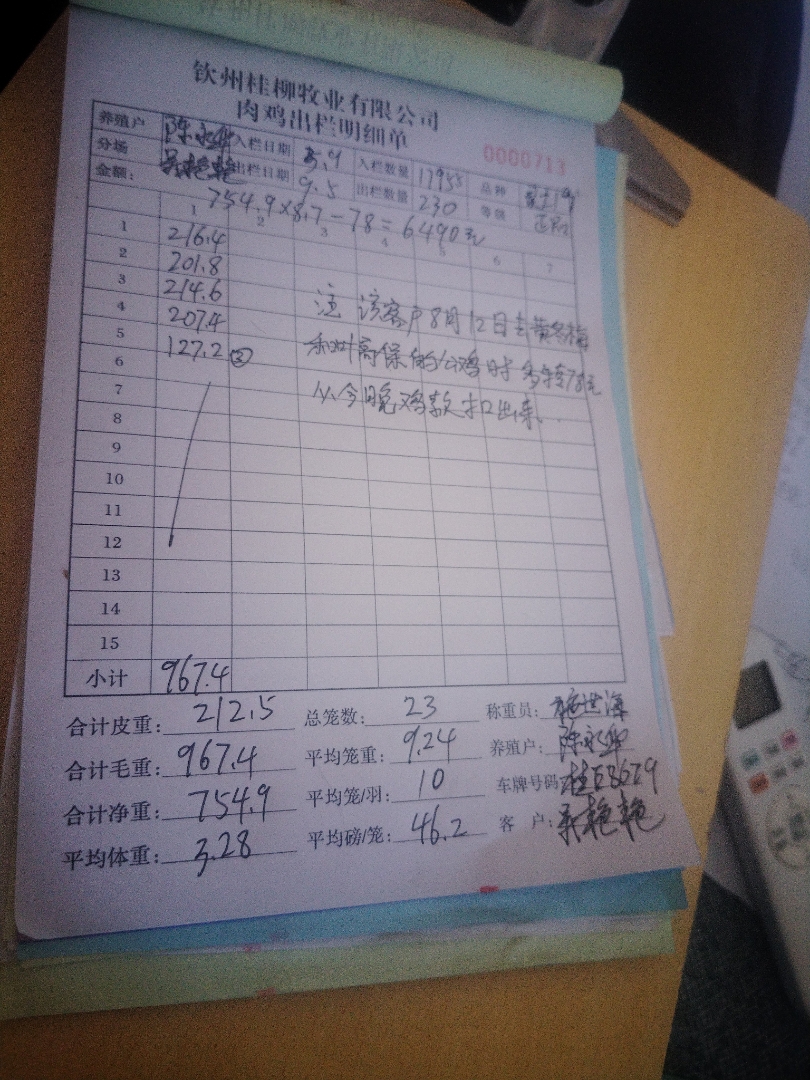 钦州桂柳牧业有限公司
肉鸡出栏明细单
0000713
养殖户 陈永华 入栏日期 5.9 入栏数量 17955 品种
分场 出栏日期 9.5 出栏数量 230 等级 正品
金额: 754.9×8.7-78=6490元
1 2 3 4 5 6 7
1 216.4
2 201.8
3 214.6
4 207.4
5 127.2 ③
6
7
8
9
10
11
12
13
14
15
小计 967.4
注 该客户8月12日
的公鸡时多转78元
从今晚鸡款扣出来.
合计皮重: 212.5 总笼数: 23 称重员:
合计毛重: 967.4 平均笼重: 9.24 养殖户: 陈永华
合计净重: 754.9 平均笼/羽: 10 车牌号码:
平均体重: 3.28 平均磅/笼: 46.2 客 户: